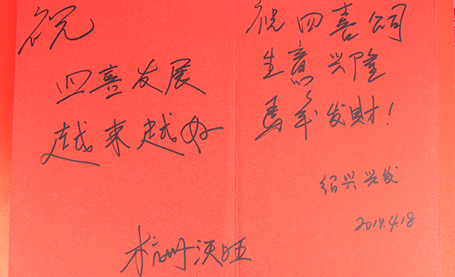 祝
四喜发展
越来越好
杭州沃旺
祝四喜公司
生意兴隆
馬年发财!
绍兴兴发
2014.4.18